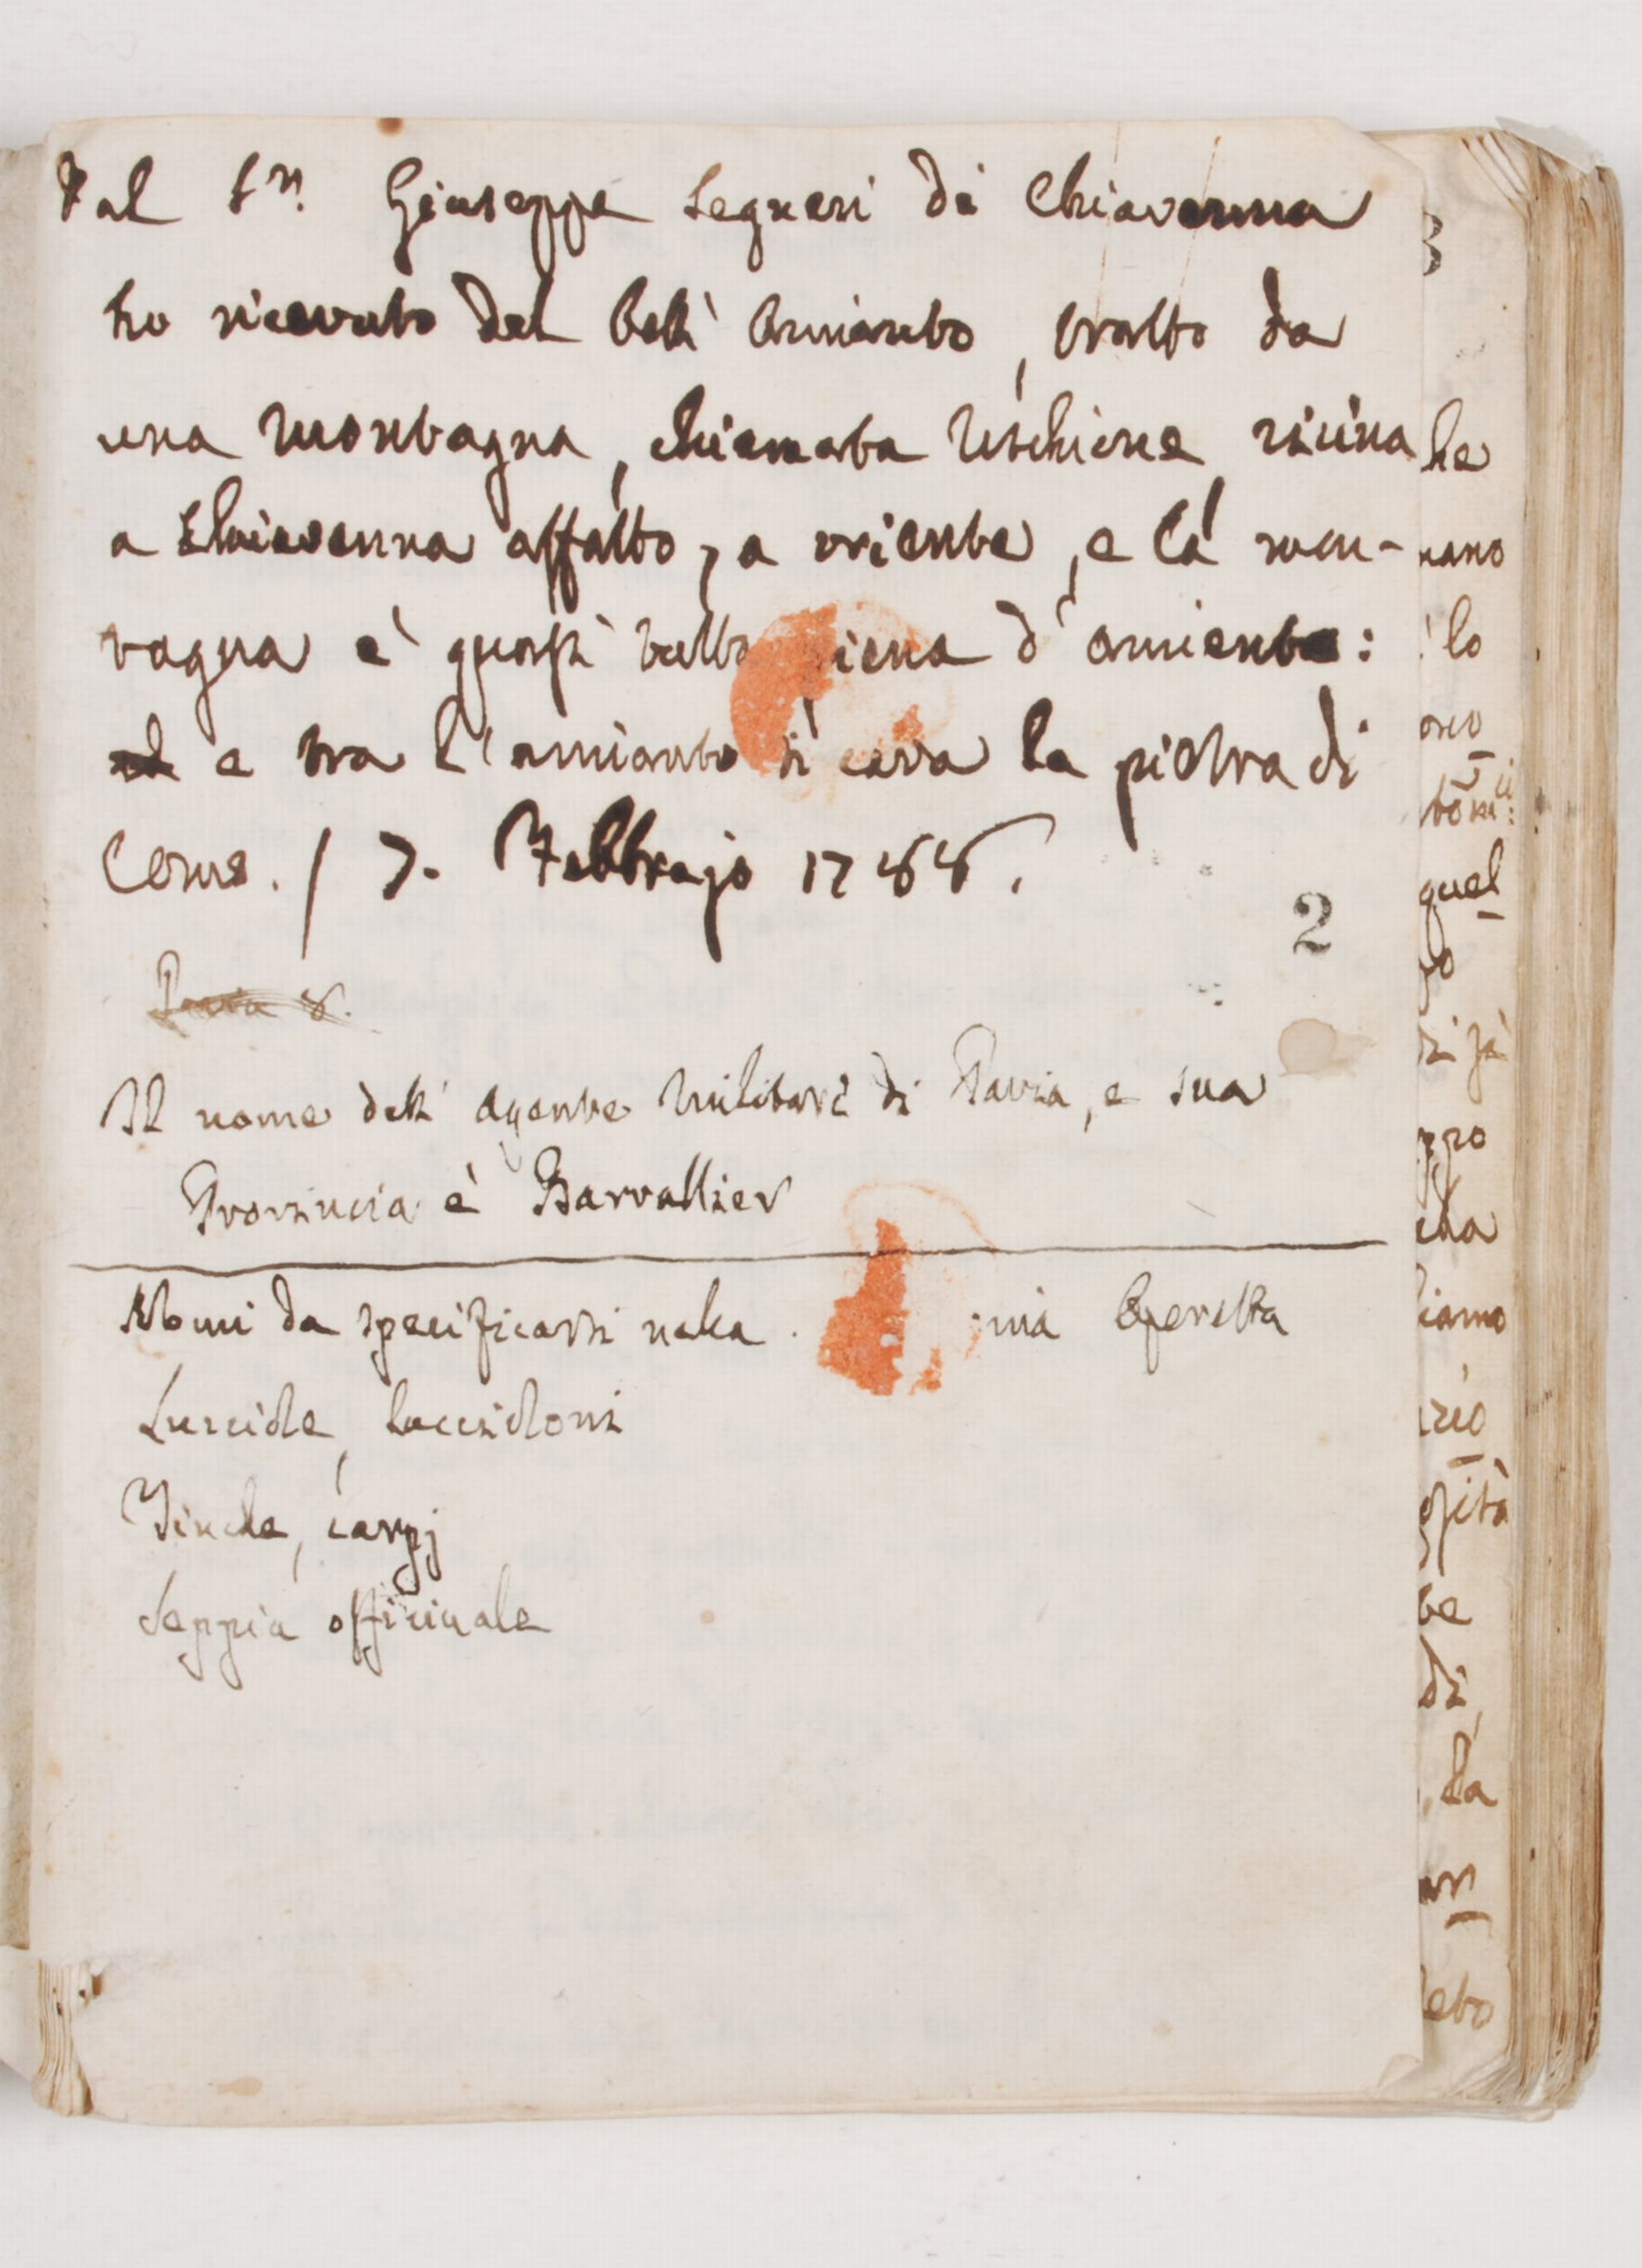 Dal Sr. Giuseppe Segueri di Chiavenna
ho ricevuto del bell' Amianto, tratto da
una Montagna, chiamata Uschione vicina
a Chiavenna affatto, a oriente, e la mon-
tagna è quasi tutta piena d' amianto:
e tra l'amianto si cava la pietra di
Como. / 7. Febbrajo 1788.
2
Pavia 8.
Il nome dell' Agente Militare di Pavia, e sua
Provincia è Barvallier
Nomi da specificarsi nella mia Operetta
Lucciole, Luccioloni
Tinche, carpj
Seppia officinale
he
nano
lo
quel
ppo
cha
iamo
te
di
la